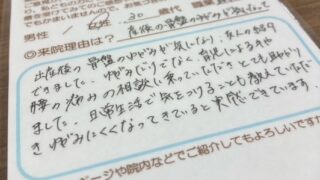 でもかまいませんので、お気
男性 / 女性 30 歳代 職業
◎来院理由は? 産後の骨盤のゆがみが気になって
出産後の骨盤のゆがみが気になり、友人の紹介
できました。ゆがみだけでなく、育児による手や
腰の痛みの相談に乗っていただきとても助かり
ました。日常生活で気をつけることも教えていただ
きゆがみにくくなってきていると実感できています。
ページや院内などでご紹介してもよろしいですか